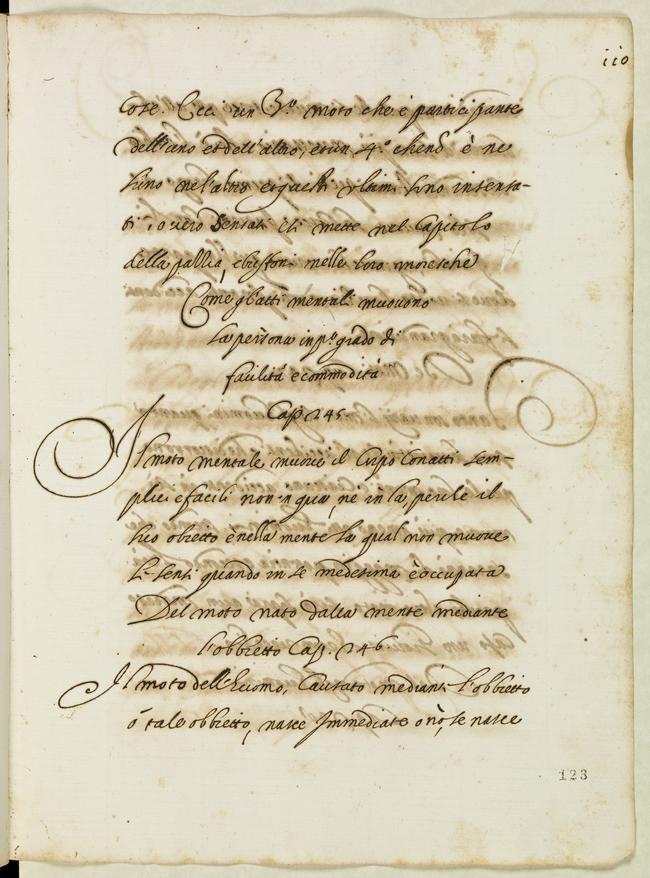 110
cose. Ecci un 3.º moto che è partecipante
dell'uno et dell'altro, et un 4.º che nō è ne
l'uno nel'altro et questi ultimi sono insensa-
ti, o vero Sensati et si mette nel Capitolo
della pazzia, buffoni nelle loro moresche
Come gl'atti mentali muovono
la persona in p.º grado di
facilità e commodità
Cap. 245.
Il moto mentale muove il Corpo con atti sem-
plici e facili non in qua, nè in la, perche il
suo obietto è nella mente la qual non muove
li sensi quando in se medesima è occupata
Del moto nato dalla mente mediante
l'obbietto Cap. 246.
Il moto dell'huomo, Causato mediante l'obbietto
ò tale obbietto, nasce Immediate o nò, se nasce
123